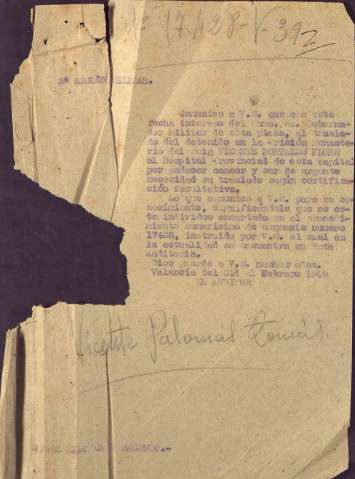 17.428-V-39
3ª REGIÓN MILITAR.
Comunico a V.S. que con esta
fecha intereso del Excmo. Sr. Goberna-
dor Militar de esta plaza, el trasla-
do del detenido en la Prisión Monaste-
rio del Puig VICENTE
al Hospital Provincial de esta capital
por padecer cancer y ser de urgente
necesidad su traslado según certifi-
cación facultativa.
Lo que comunico a V.S. para su co-
nocimiento, significándole que es es-
te individuo encartado en el procedi-
miento sumarísimo de urgencia número
17428, instruida por V.S. el cual en
la actualidad se encuentra en esta
auditoria.
Dios guarde a V.S. muchos años.
Valencia del Cid Febrero 1940
EL AUDITOR
Vicente Palomas Tomás
MILITAR